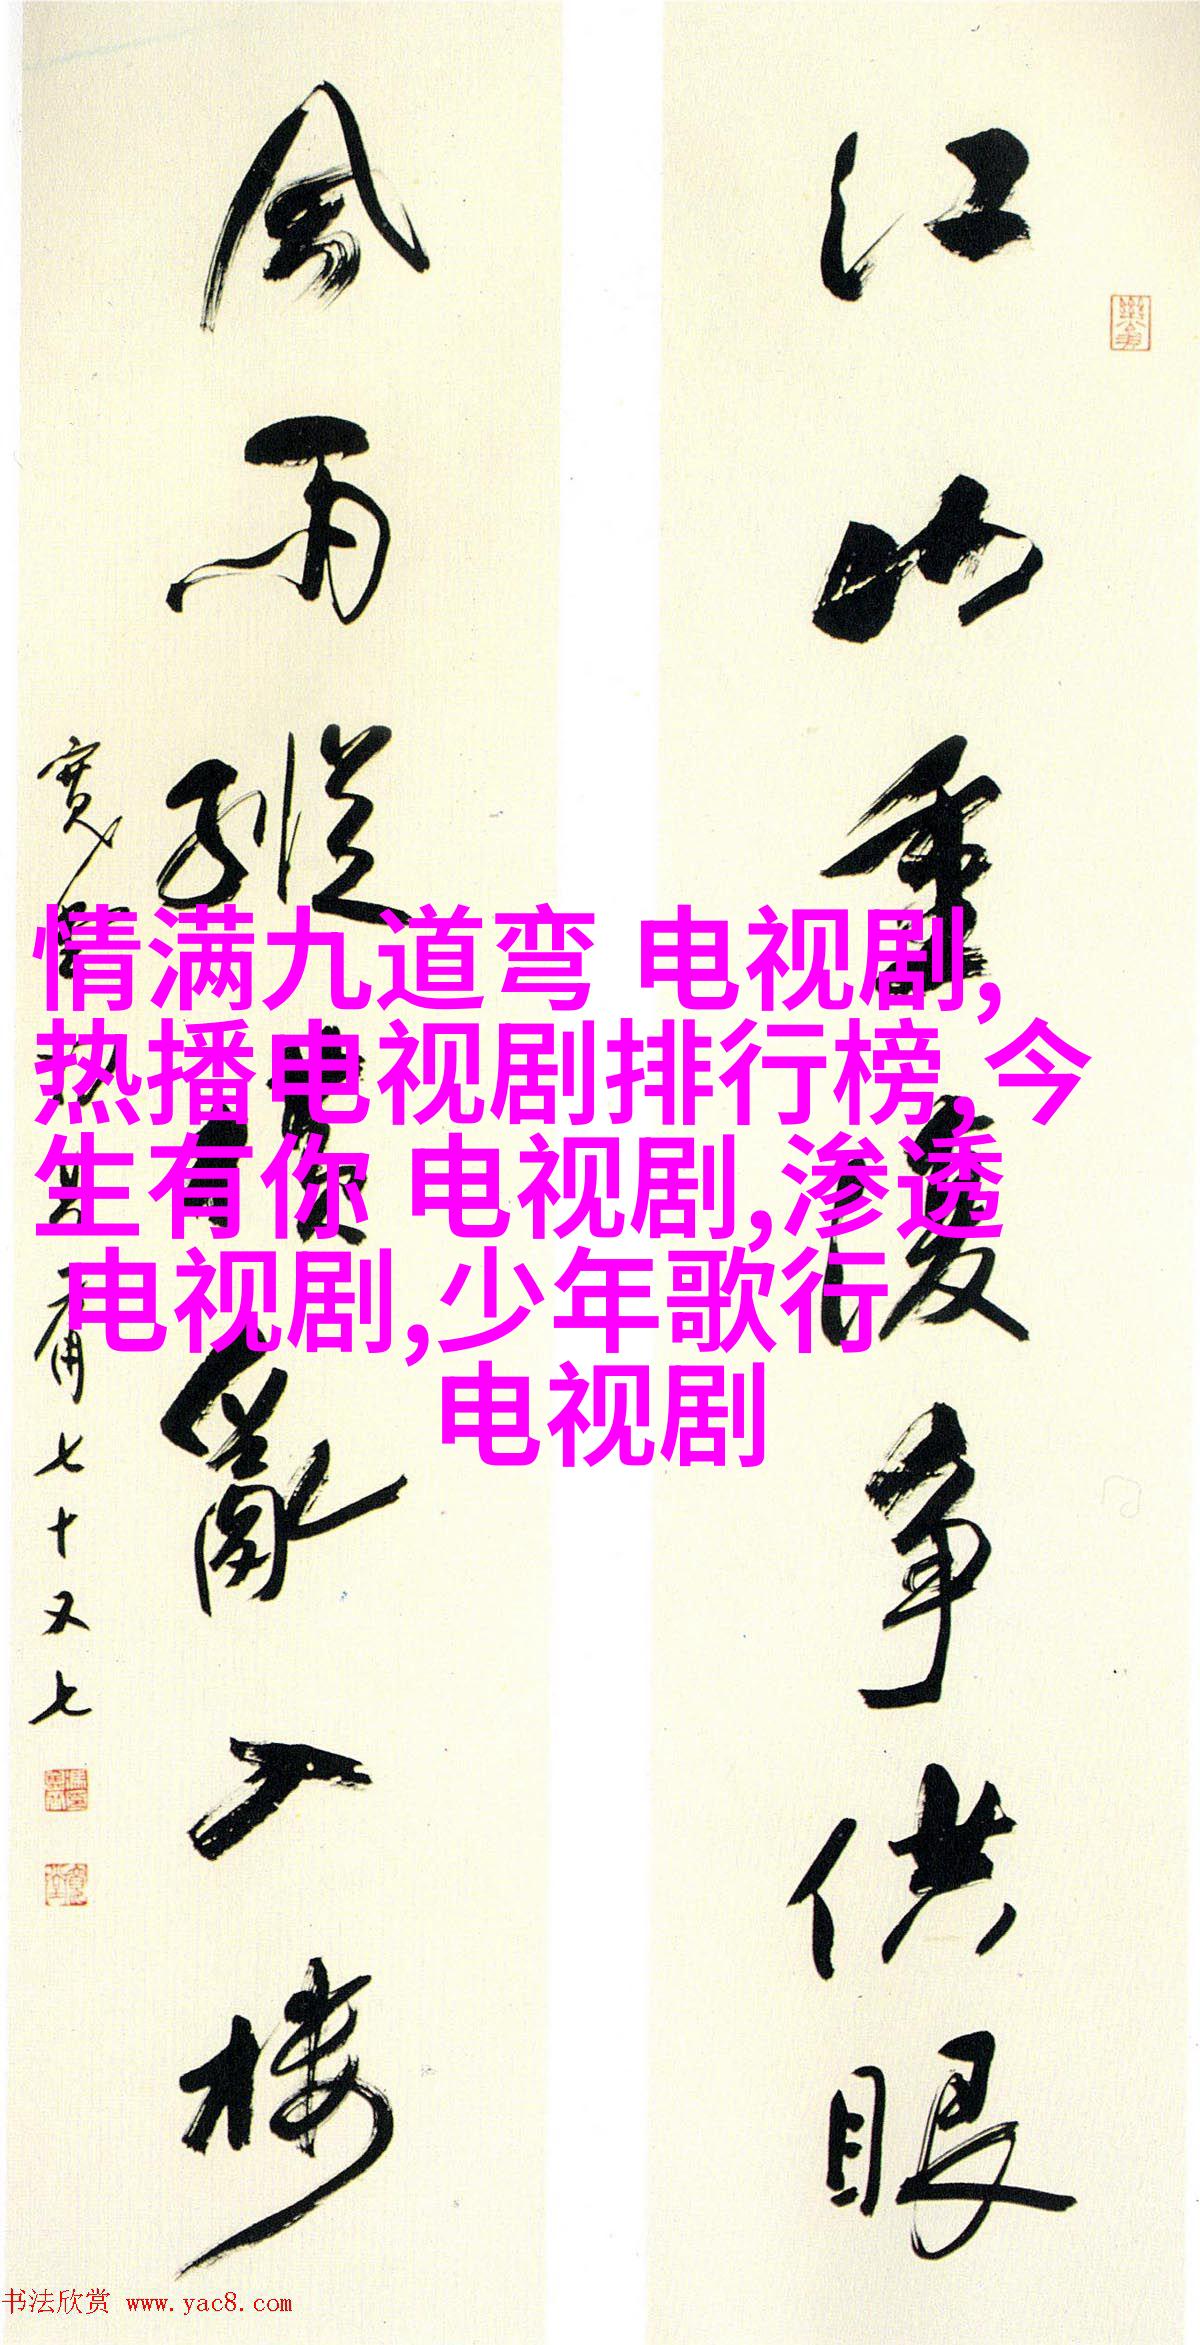 江山重復争供眼
風雨縱橫亂入樓
七十又七
情满九道弯 电视剧,
热播电视剧排行榜,今
生有你 电视剧,渗透
电视剧,少年歌行
电视剧
书法欣赏 www.yac8.com